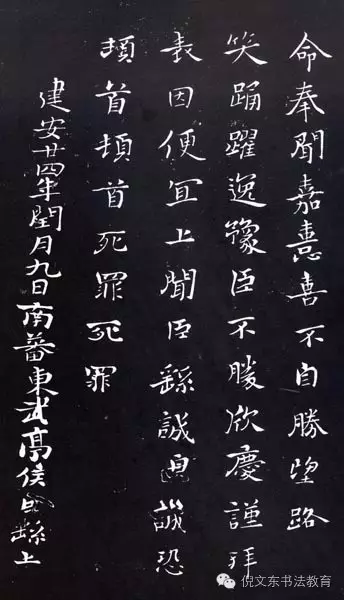 命奉聞嘉憙喜不自勝望路
笑踊躍逸豫臣不勝欣慶謹拜
表因便宜上聞臣繇誠惶誠恐
頓首頓首死罪死罪
建安廿四年閏月九日南蕃東武亭侯臣繇上
倪文东书法教育